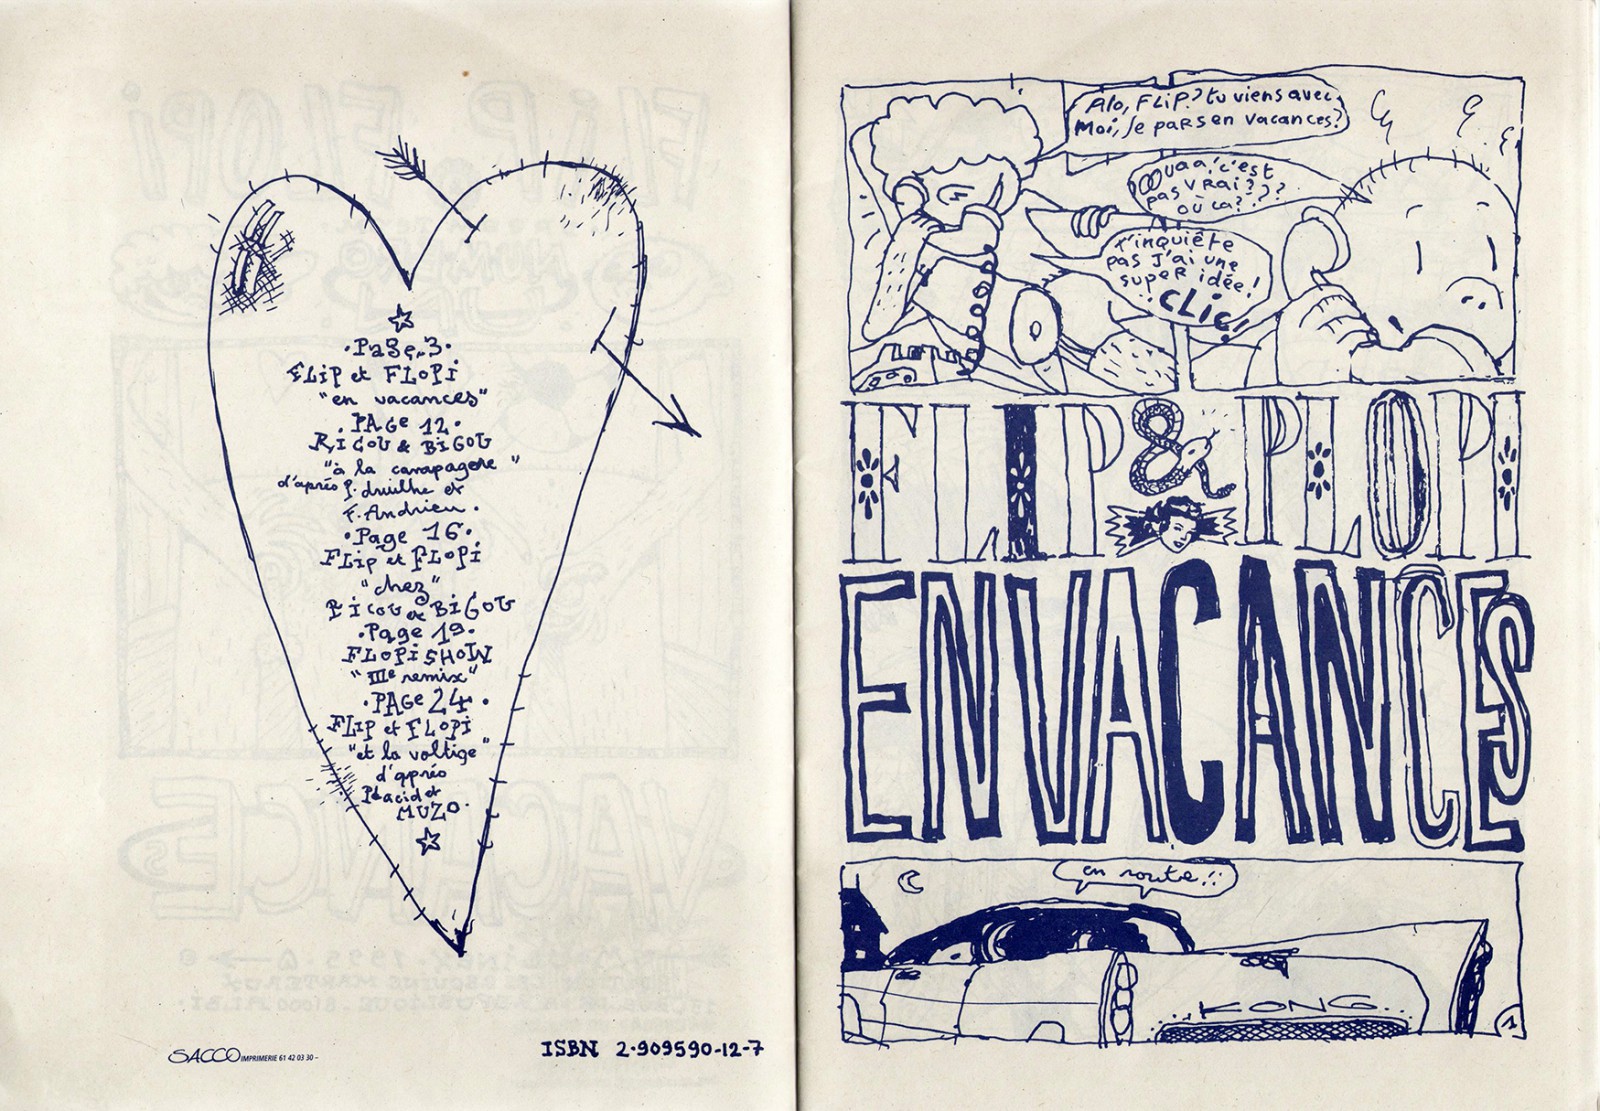 ·Page·3·
FLiP et FLoPi
"en vacances"
·PAGe 12·
RiCOU & BiGOU
"à la carapagere"
d'après P. druilhe et
F. Andrieu.
·Page 16·
FLip et FLOPi
"chez"
RiCOU & BiGOU
·Page 19·
FLOPiSHOW
"IIIe remix"
·PAGe 24·
FLiP et FLOPi
"et la voltige"
d'après
PLacid et
MUZO·
SACCO IMPRIMERIE 61 42 03 30 –
ISBN 2·909590-12-7
Alo, FLiP? tu viens avec
Moi, Je paRs en vacances?
OOuaa! c'est
pas vRai???
où ça???
t'inquiète
pas J'ai une
supeR idée!
..CLic!
FLIP & PLOPI
EN VACANCES
en route!!
KONG
1